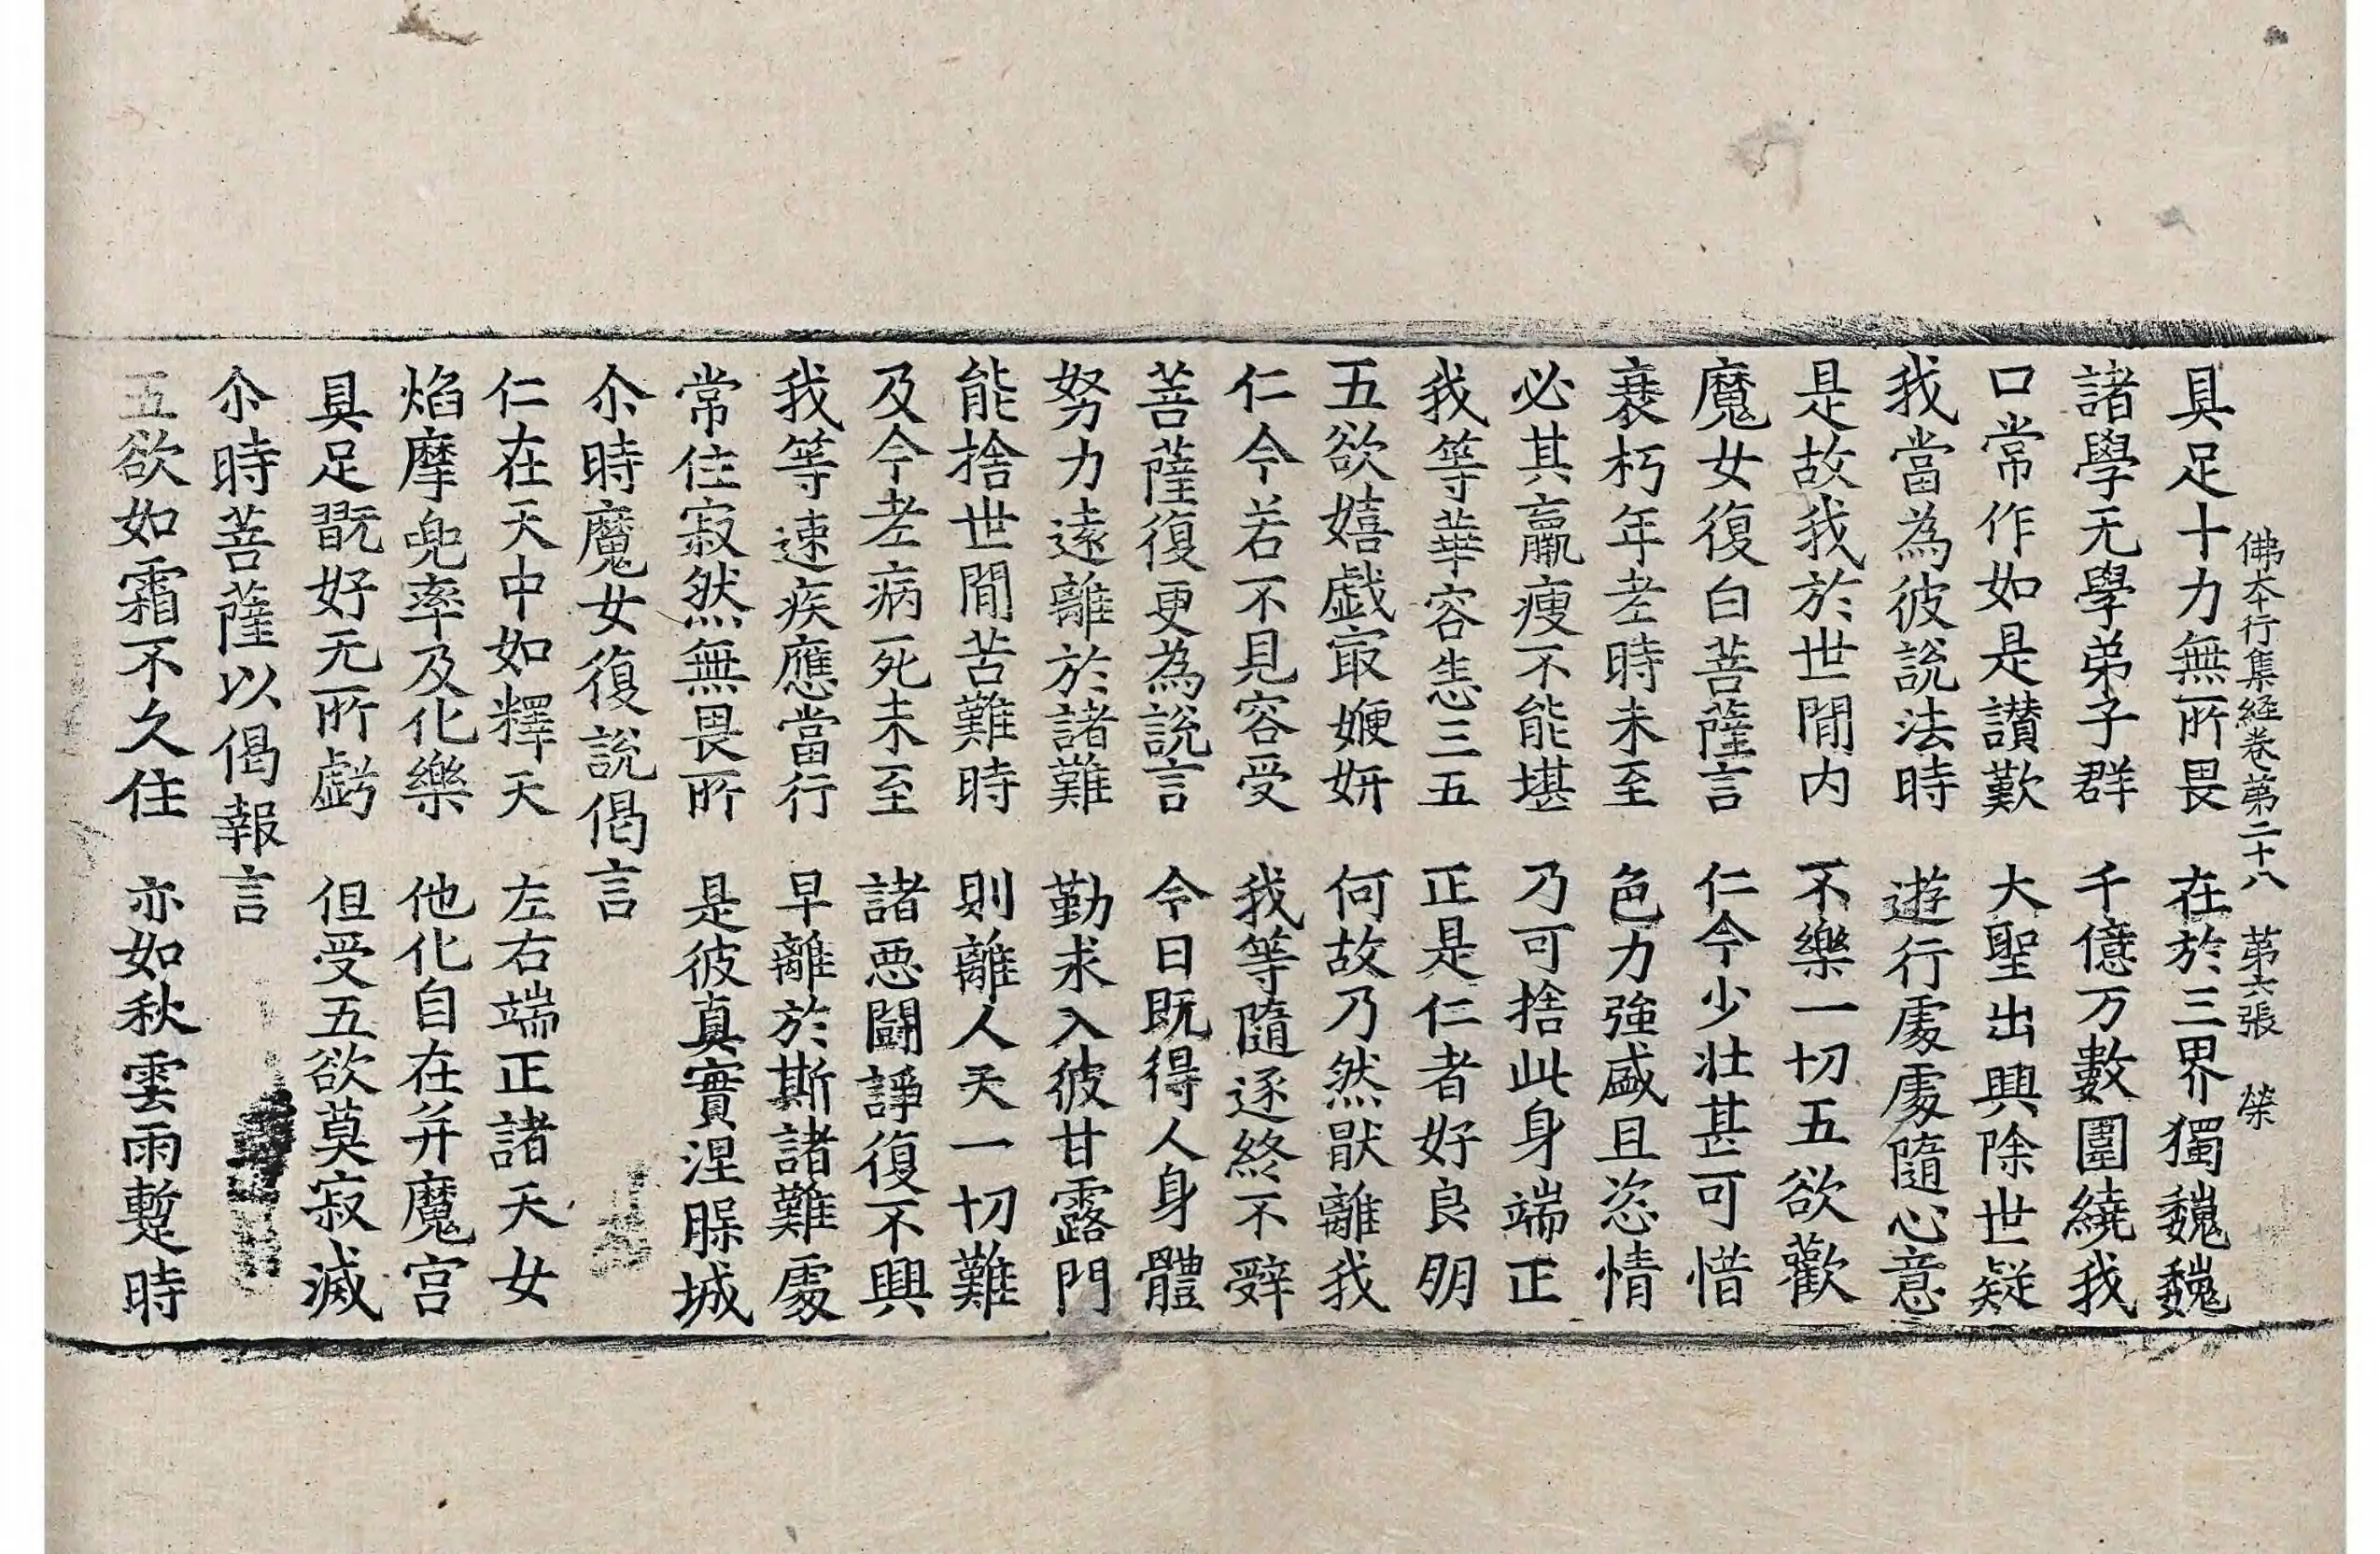 佛本行集経卷第二十八　第六張　榮
具足十力無所畏　在於三界獨魏魏
諸學无學弟子群　千億万數圍繞我
口常作如是讃歎　大聖出興除世疑
我當為彼說法時　遊行處處隨心意
是故我於世間内　不樂一切五欲歡
魔女復白菩薩言　仁今少壮甚可惜
衰朽年老時未至　色力強盛且恣情
必其羸瘦不能堪　乃可捨此身端正
我等華容恙三五　正是仁者好良朋
五欲嬉戯㝡㛹妍　何故乃然猒離我
仁今若不見容受　我等隨逐終不辤
菩薩復更為說言　今日既得人身體
努力遠離於諸難　勤求入彼甘露門
能捨世間苦難時　則離人天一切難
及今老病死未至　諸惡闘諍復不興
我等速疾應當行　早離於斯諸難處
常住寂然無畏所　是彼真實涅槃城
尒時魔女復說偈言
仁在天中如釋天　左右端正諸天女
焰摩兜率及化樂　他化自在并魔宮
具足翫好无所虧　但受五欲莫寂滅
尒時菩薩以偈報言
五欲如霜不久住　亦如秋雲雨蹔時